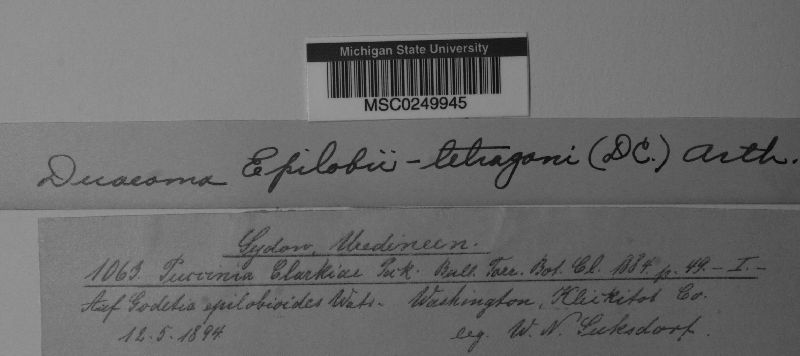 Michigan State University
MSC0249945
Dicaeoma Epilobii-tetragoni (DC.) Arth.
Sydow, Uredineen.
1063. Puccinia Clarkiae Pk. Bull. Torr. Bot. Cl. 1884. p. 49. - I. -
Auf Godetia epilobioides Wats. Washington, Klickitat Co.
12.5.1894. leg. W. N. Suksdorf.